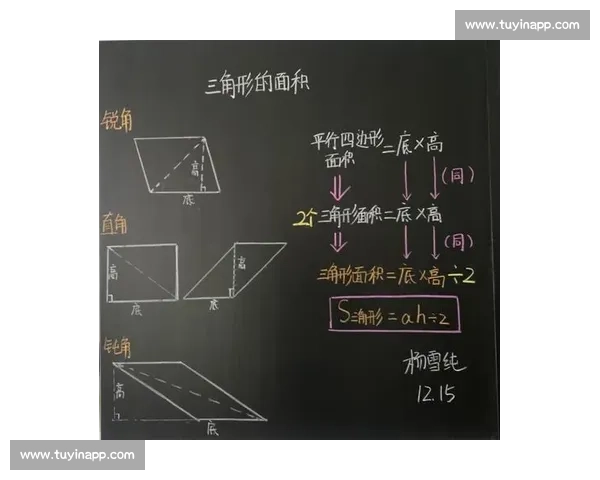 www.tuyinapp.com
三角形的面积
锐角
高
底
直角
高
底
高
底
钝角
高
底
平行四边形
面积
=底×高
(同)
2个三角形面积=底×高
(同)
三角形面积=底×高÷2
S三角形=ah÷2
杨雪纯
12.15
www.tuyinapp.com